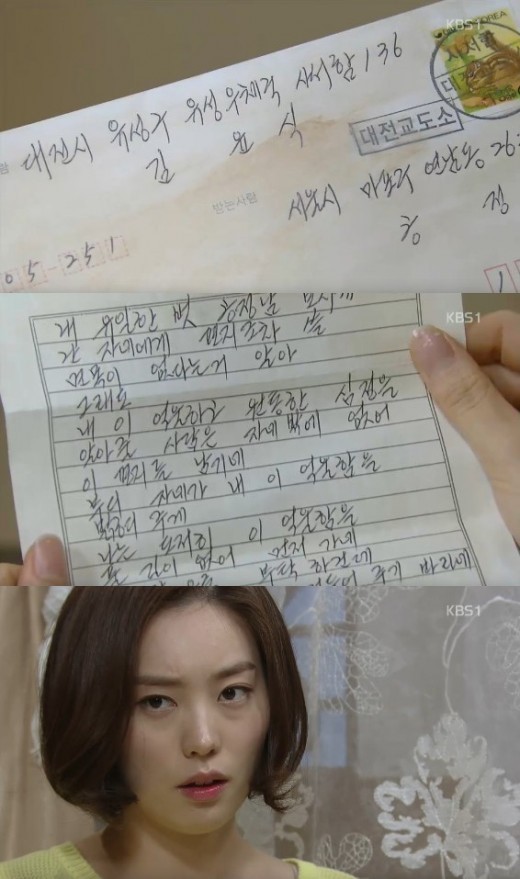 KBS1
KOREA
사서함
대전
대전시 유성구 유성우체국 사서함 136
김 윤 식
대전교도소
받는사람
서울시 마포구 연남동 26
정
05-251
1
KBS1
내 유일한 벗
간 자네에게 편지조차 쓸
면목이 없다는거 알아
그래도
내 이 억울하고 원통한 심정을
알아줄 사람은 자네밖에 없어
이 편지를 남기네
부디 자네가 내 이 억울함을
밝혀 주게
나는 도저히 이 억울함을
풀 길이 없어 먼저 가네
부탁 하건데
주기 바라네
KBS1